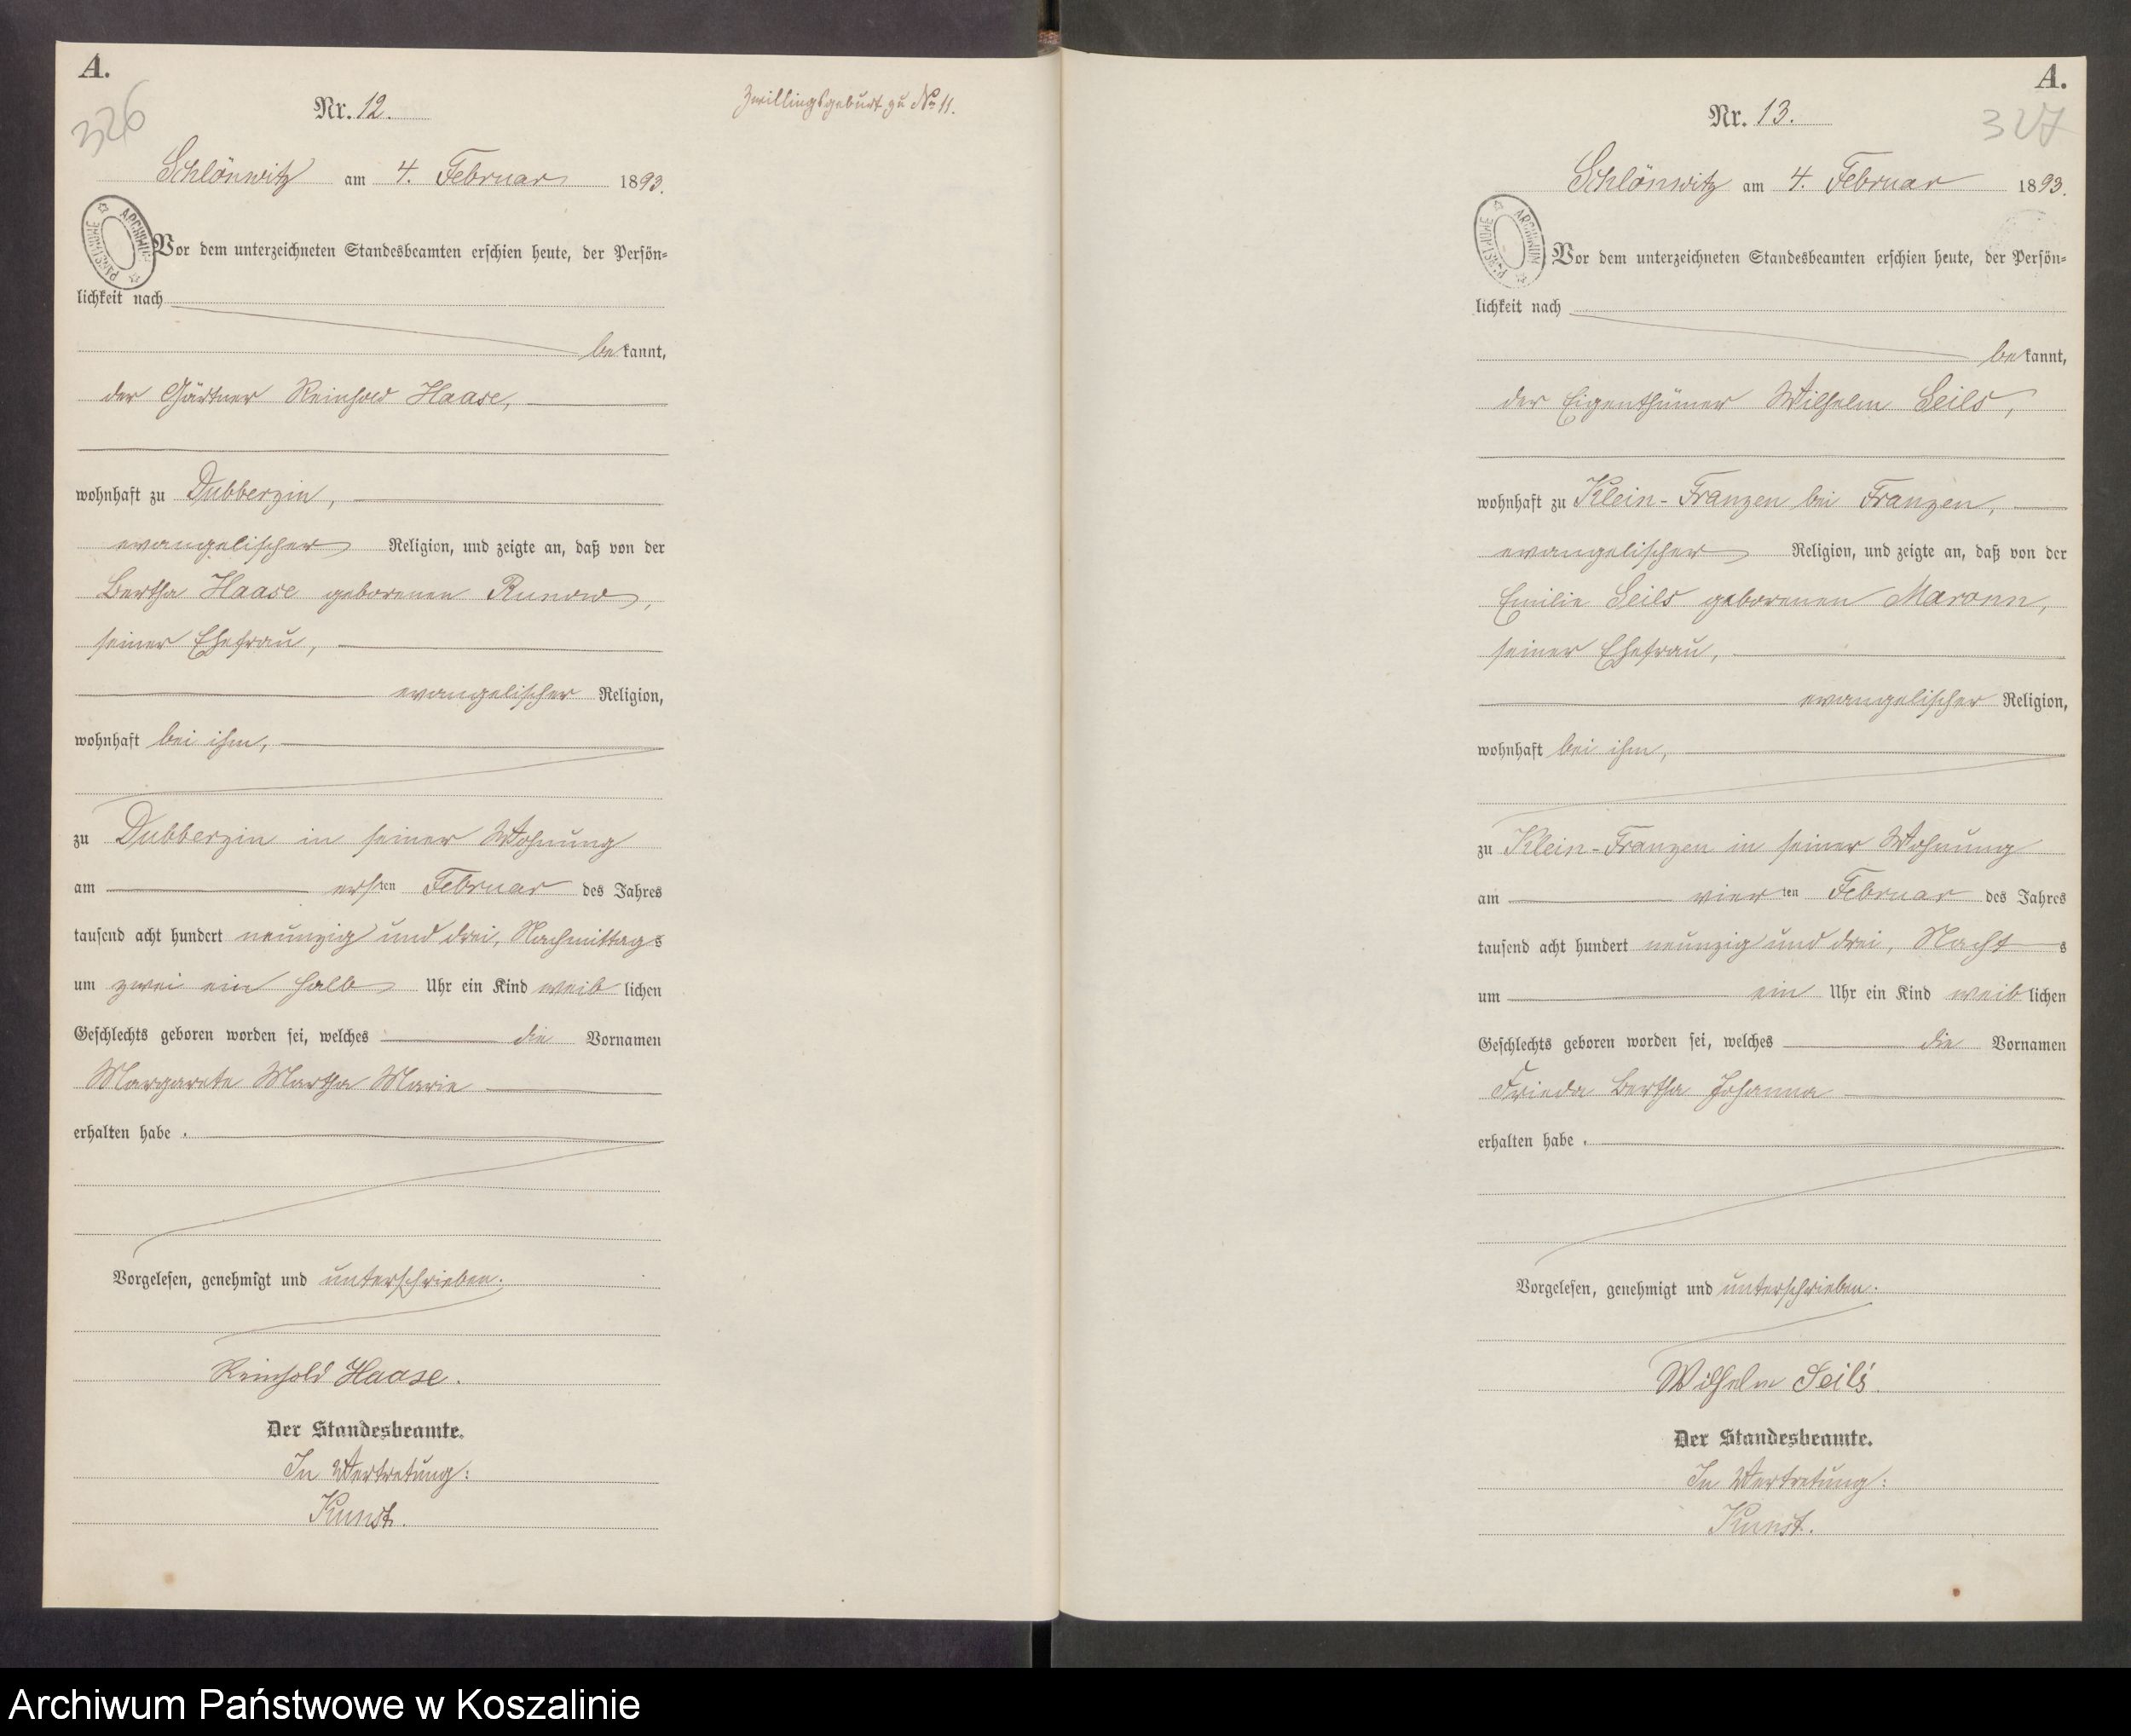 A.
326
Nr. 12.
Zwillingsgeburt zu No 11.
Schlönwitz am 4. Februar 1893.
ARCHIWUM PAŃSTWOWE
Vor dem unterzeichneten Standesbeamten erschien heute, der Persön=
lichkeit nach
bekannt,
der Gärtner Reinhold Haase,
wohnhaft zu Dubberzin,
evangelischer Religion, und zeigte an, daß von der
Bertha Haase geborenen Runow,
seiner Ehefrau,
evangelischer Religion,
wohnhaft bei ihm,
zu Dubberzin in seiner Wohnung
am ersten Februar des Jahres
tausend acht hundert neunzig und drei, Nachmittags
um zwei ein halb Uhr ein Kind weiblichen
Geschlechts geboren worden sei, welches die Vornamen
Margarete Martha Marie
erhalten habe.
Vorgelesen, genehmigt und unterschrieben.
Reinhold Haase.
Der Standesbeamte.
In Vertretung:
Kunst.
A.
327
Nr. 13.
Schlönwitz am 4. Februar 1893.
ARCHIWUM PAŃSTWOWE
Vor dem unterzeichneten Standesbeamten erschien heute, der Persön=
lichkeit nach
bekannt,
der Eigenthümer Wilhelm Seils,
wohnhaft zu Klein-Franzen bei Franzen,
evangelischer Religion, und zeigte an, daß von der
Emilie Seils geborenen Maronn,
seiner Ehefrau,
evangelischer Religion,
wohnhaft bei ihm,
zu Klein-Franzen in seiner Wohnung
am vierten Februar des Jahres
tausend acht hundert neunzig und drei, Nachts
um ein Uhr ein Kind weiblichen
Geschlechts geboren worden sei, welches die Vornamen
Frieda Bertha Johanna
erhalten habe.
Vorgelesen, genehmigt und unterschrieben.
Wilhelm Seils.
Der Standesbeamte.
In Vertretung:
Kunst.
Archiwum Państwowe w Koszalinie